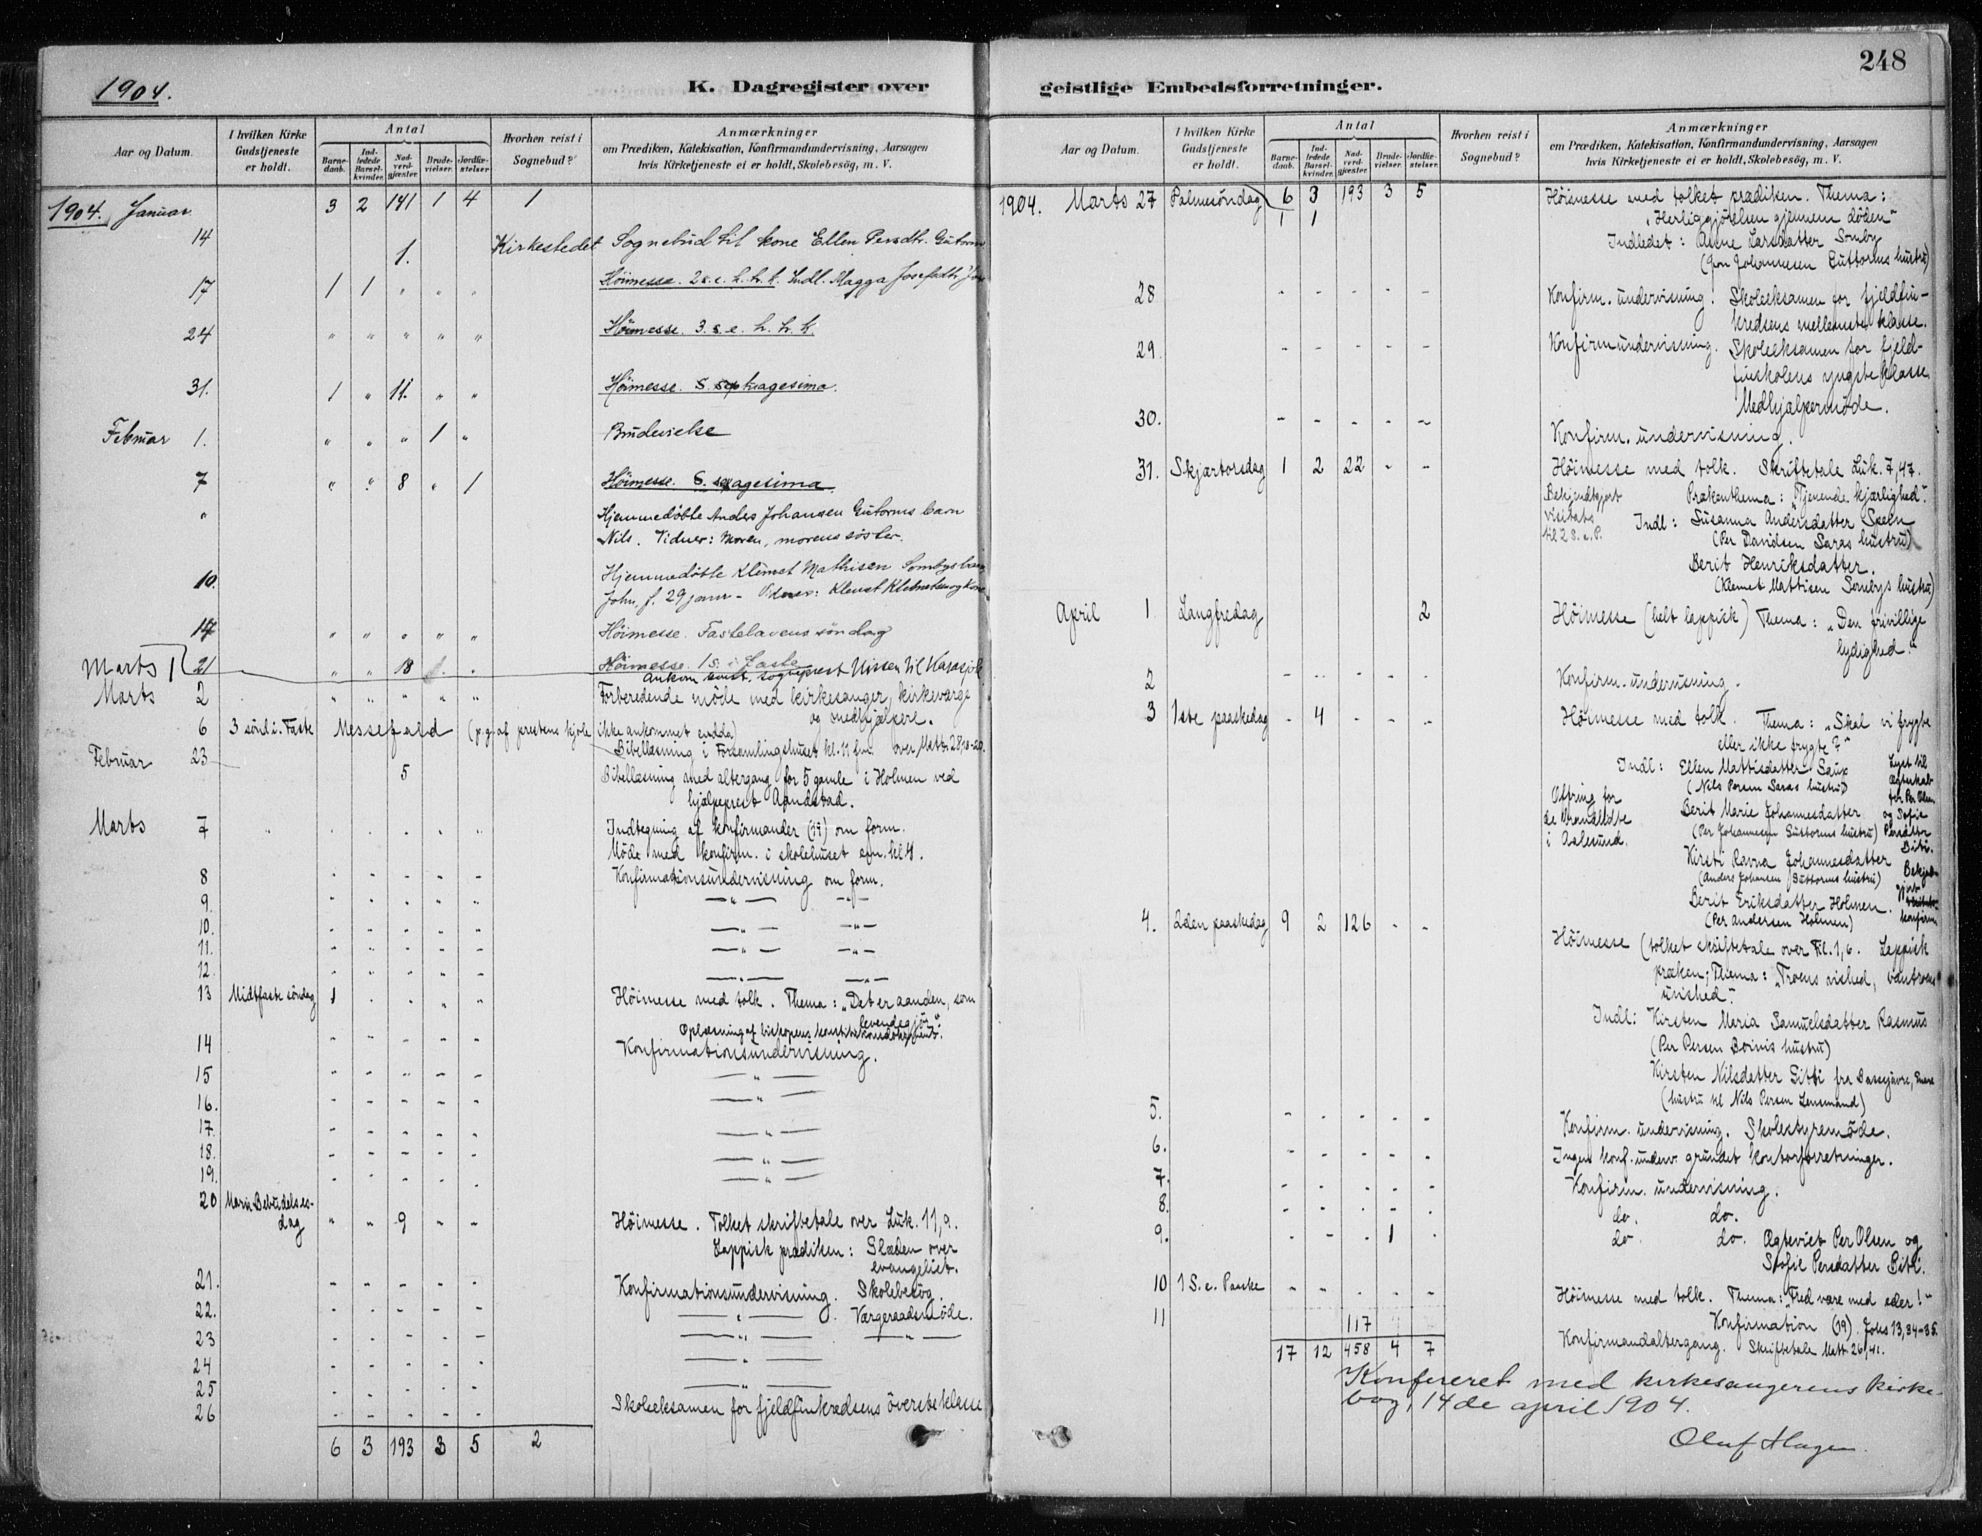 248
1904.
K. Dagregister over geistlige Embedsforretninger.
Aar og Datum.
I hvilken Kirke Gudstjeneste er holdt.
Antal
Barnedaab.
Indledede Barselkvinder.
Nadverdgjæster.
Brudevielser.
Jordfæstelser.
Hvorhen reist i Sognebud?
Anmærkninger
om Prædiken, Katekisation, Konfirmandundervisning, Aarsagen
hvis Kirketjeneste ei er holdt, Skolebesøg, m. V.
1904. Januar 3 2 141 1 4 1
14 1. Kirkestedet Sognebud til kone Ellen Persdtr. Guttorm
17 1 1 " " " Höimesse. 2 s. e. h. t. k. Indl. Magga Josefsdtr.
24 " " " " " Höimesse. 3. s. e. h. t. k.
31. 1 " 11. " " Höimesse. S. septuagesima.
Februar 1. " " " 1 " Brudevielse
7 " " 8 " 1 Höimesse. S. sexagesima.
" Hjemmedöbte Anders Johansen Gutorms barn
Nils. Vidner: Moren, morens söster.
10. Hjemmedöbte Klemet Mathisen Sombys barn
John, f. 29 janr - Vidner: Klemet Klemetsen og kone
14 " " " " " Höimesse. Fastelavens söndag
Marts 1 21 " " 18 1. " Höimesse. 1 S. i Faste
Ankom sogneprest Nissen til Karasjok
Marts 2 " " " " " Forberedende möde med kirkesanger, kirkeværge
og medhjælpere.
6 3 sönd. i. Faste Messefald (p.g. af prestens kjole ikke ankommet endda)
Bibellæsning i Forsamlingshuset kl. 11 fm. over Matth. 28,18-20.
Februar 23 5 Bibellæsning med altergang for 5 gamle i Holmen ved
hjælpeprest Aandstad.
Marts 7 " . . . " " Indtegning af konfirmander (19) om form.
Möde med konfirm. i skolehuset em. kl 4.
8 - - - - - Konfirmationsundervisning om form.
9. - - - - - —"— —"—
10. - - - - - —"— —"—
11. - - - - - —"— —"—
12. - - - - - —"— —"—
13 Midtfaste söndag 1 . . " " Höimesse med tolk. Thema: "Det er aanden, som
levendegjör".
Oplæsning af biskopens
14 - - - - - Konfirmationsundervisning.
15 - - - - - —"—
16. - - - - - —"—
17. - - - - - —"—
18. - - - - - —"—
19. - - - - - —"—
20 Mariæ Bebudelses-
dag " " 9 " " Höimesse. Tolket skriftetale over Luk. 11,9.
Lappisk prædiken: Glæden over
evangeliet.
21. - - - - - Konfirmationsundervisning. Skolebesög.
22. - - - - - —"— . Værgeraadsmöde.
23 - - - - - —"— —"—
24 - - - - - —"—
25 - - - - - —"—
26 - - - - - Skoleeksamen for fjeldfinkredsens överste klasse
6 3 193 3 5 2
Aar og Datum.
I hvilken Kirke Gudstjeneste er holdt.
Antal
Barnedaab.
Indledede Barselkvinder.
Nadverdgjæster.
Brudevielser.
Jordfæstelser.
Hvorhen reist i Sognebud?
Anmærkninger
om Prædiken, Katekisation, Konfirmandundervisning, Aarsagen
hvis Kirketjeneste ei er holdt, Skolebesøg, m. V.
1904. Marts 27 Palmesöndag 6 3 193 3 5 Höimesse med tolket prædiken. Thema:
1 1 "Herliggjörelsen gjennem döden"
Indledet: Anne Larsdatter Somby
(Jon Johannesen Guttorms hustru)
28 - - - - - Konfirm. undervisning. Skoleeksamen for fjeldfin-
kredsens mellemste klasse.
29. - - - - - Konfirmundervisning. Skoleeksamen for fjeld-
finskolens yngste klasse.
Medhjælpermöde.
30. - - - - - Konfirm. undervisning.
31. Skjærtorsdag 1 2 22 - - Höimesse med tolk. Skriftetale Luk. 7,47.
Bekjendtgjort visitats til 2 S. e. P.
Prækenthema: "Tjenende kjærlighed".
Indl: Susanna Andersdatter Spein
(Per Davidsen Saras hustru)
Berit Henriksdatter.
(Klemet Mattisen Sombys hustru)
April 1 Langfredag 2 Höimesse (helt lappisk) Thema: "Den frivillige
lydighed."
2 - - - - - Konfirm. undervisning.
3 1ste paaskedag - 4 - - - Höimesse med tolk. Thema: "Skal vi frygte
eller ikke frygte?"
Indl: Ellen Mattisdatter Saux
(Nils Persen Saras hustru)
Berit Marie Johannesdatter
(Per Johannesen Guttorms hustru)
Kirsti Ravna Johannesdatter
(Anders Johansen Guttorms hustru)
Berit Eriksdatter Holmen.
(Per Andersen Holmen)
Ofring for de brandlidte i Aalesund.
Lyst til ægteskab for Per Olsen og Sofie Persdatter Biti.
4. 2den paaskedag 9 2 126 - - Höimesse (tolket skriftetale over Fil. 1,6. Lappisk
præken; Thema: "Troens vished, vantroens
uvished".
Indl: Kirsten Maria Samuelsdatter Rasmus
(Per Persen Boinis hustru)
Kirsten Nilsdatter Eitti fra
(hustru til Nils Persen Lensmand)
5. - - - - - Konfirm. undervisning. Skolestyremöde.
6. - - - - - Ingen konf. underv. grundet kontorforretninger.
7. - - - - - Konfirm. undervisning.
8. - - - - - do. do.
9. - - - 1 - do. do. Ægteviet Per Olsen og
Sofie Persdatter Biti.
10 1 S. e. Paaske - - - - - Höimesse med tolk. Thema: "Fred være med eder!"
Konfirmation (19). Johs 13,34-35.
11 117 Konfirmandaltergang. Skriftetale Matt. 26,41.
17 12 458 4 7
Konfereret med kirkesangerens kirke-
bog, 14de april 1904.
Oluf Hagen